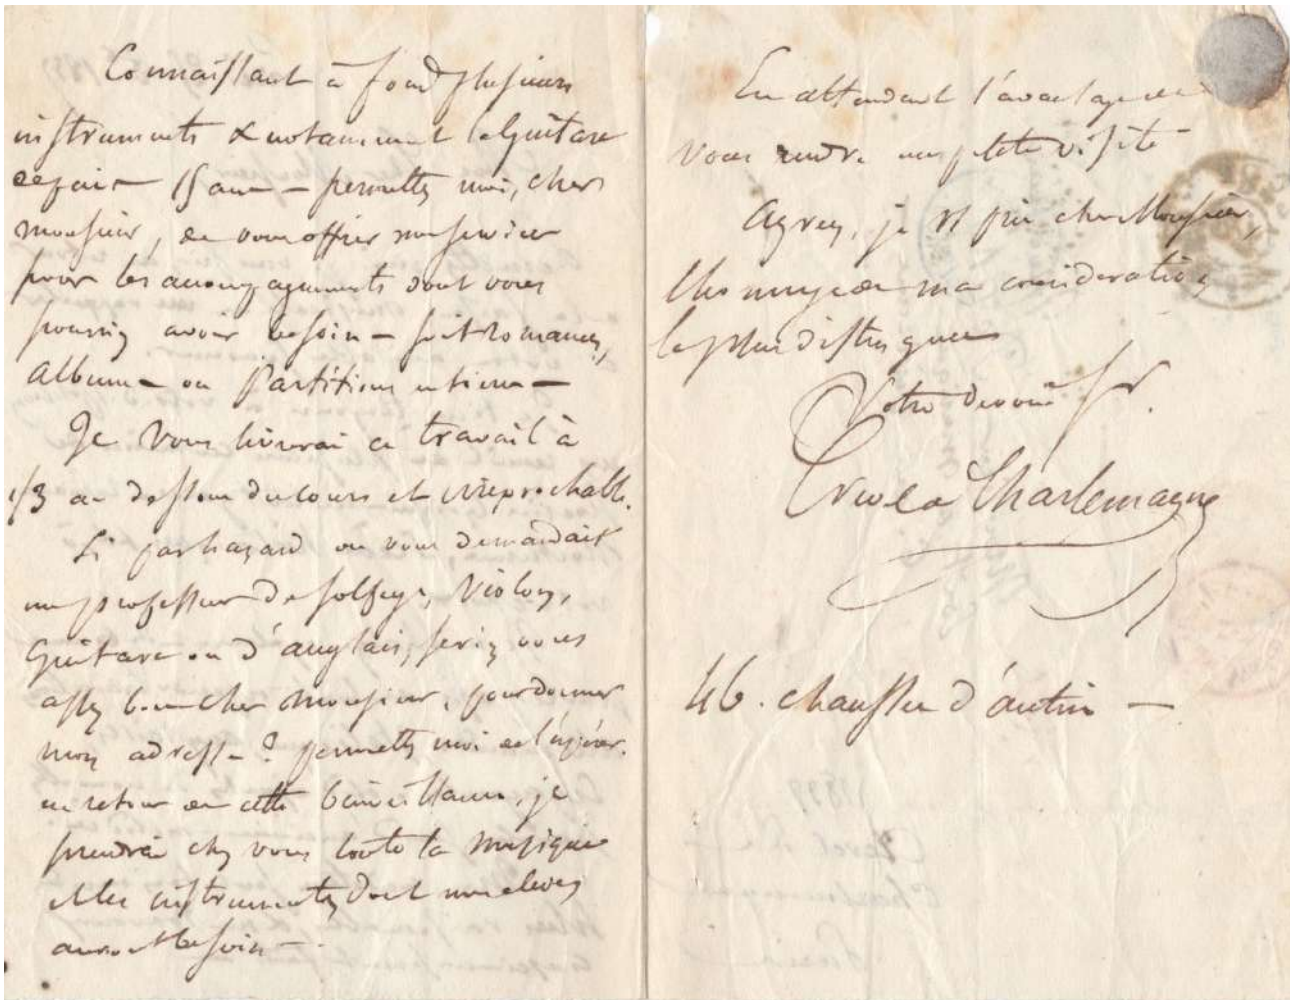 Connaissant à fond plusieurs
instruments & notamment la Guitare
depuis 15 ans – permettez moi, cher
monsieur, de vous offrir mes services
pour les accompagnements dont vous
pourriez avoir besoin – soit Romances,
Albums – ou Partitions entières –
Je vous livrerai ce travail à
1/3 au dessous du cours et irréprochable.
Si par hazard on vous demandait
un professeur de solfège, Violon,
Guitare ou d'anglais, seriez vous
assez bon cher Monsieur, pour donner
mon adresse ? permettez moi de l'espérer.
en retour de cette bienveillance, je
prendrai chez vous toute la musique
et les instruments dont mes élèves
auront besoin –.
En attendant l'avantage de
vous rendre une petite visite
Agréez, je vs prie cher Monsieur,
l'hommage de ma considération
la plus distinguée
Votre dévoué Sr.
Charlemagne
46. chaussée d'antin –